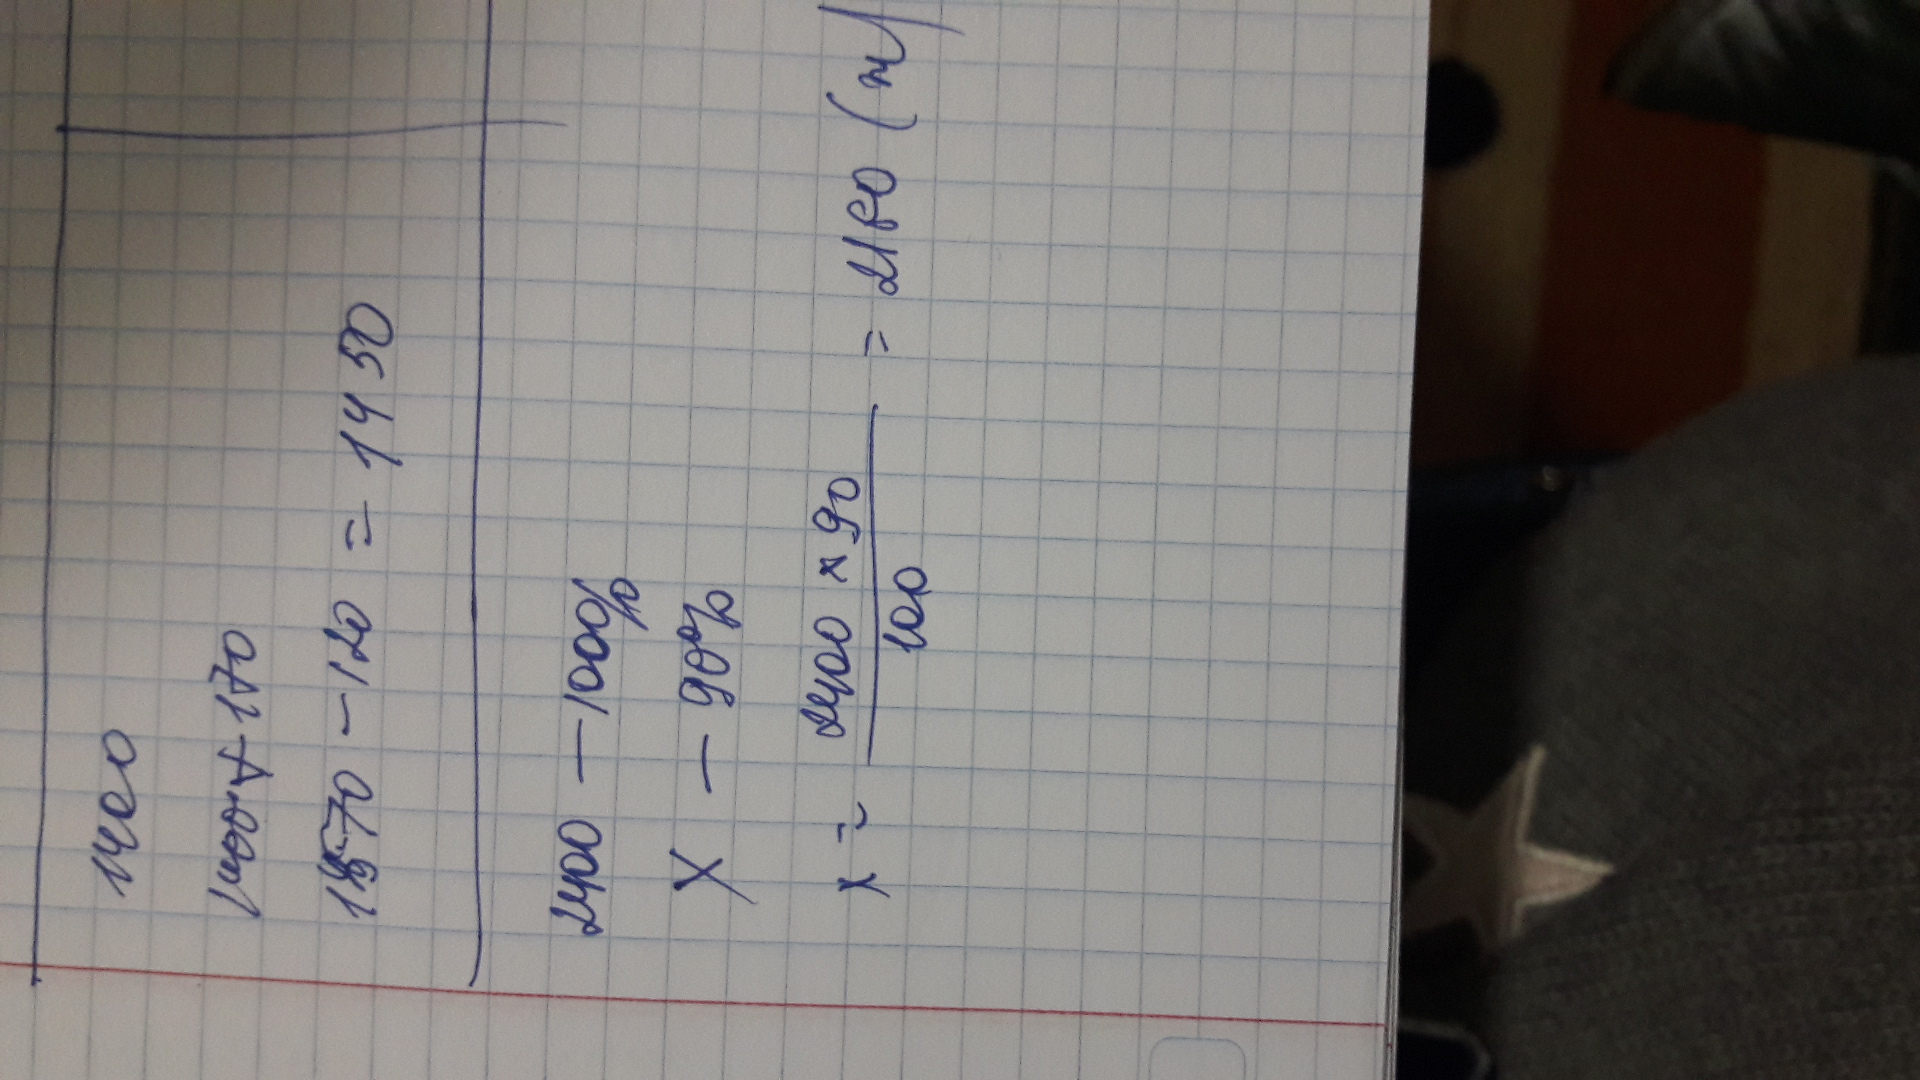 1400
1570 - 120 = 1450
2400 - 100%
X - 90%
x = 2400 x 90 / 100 = 2160 (м)